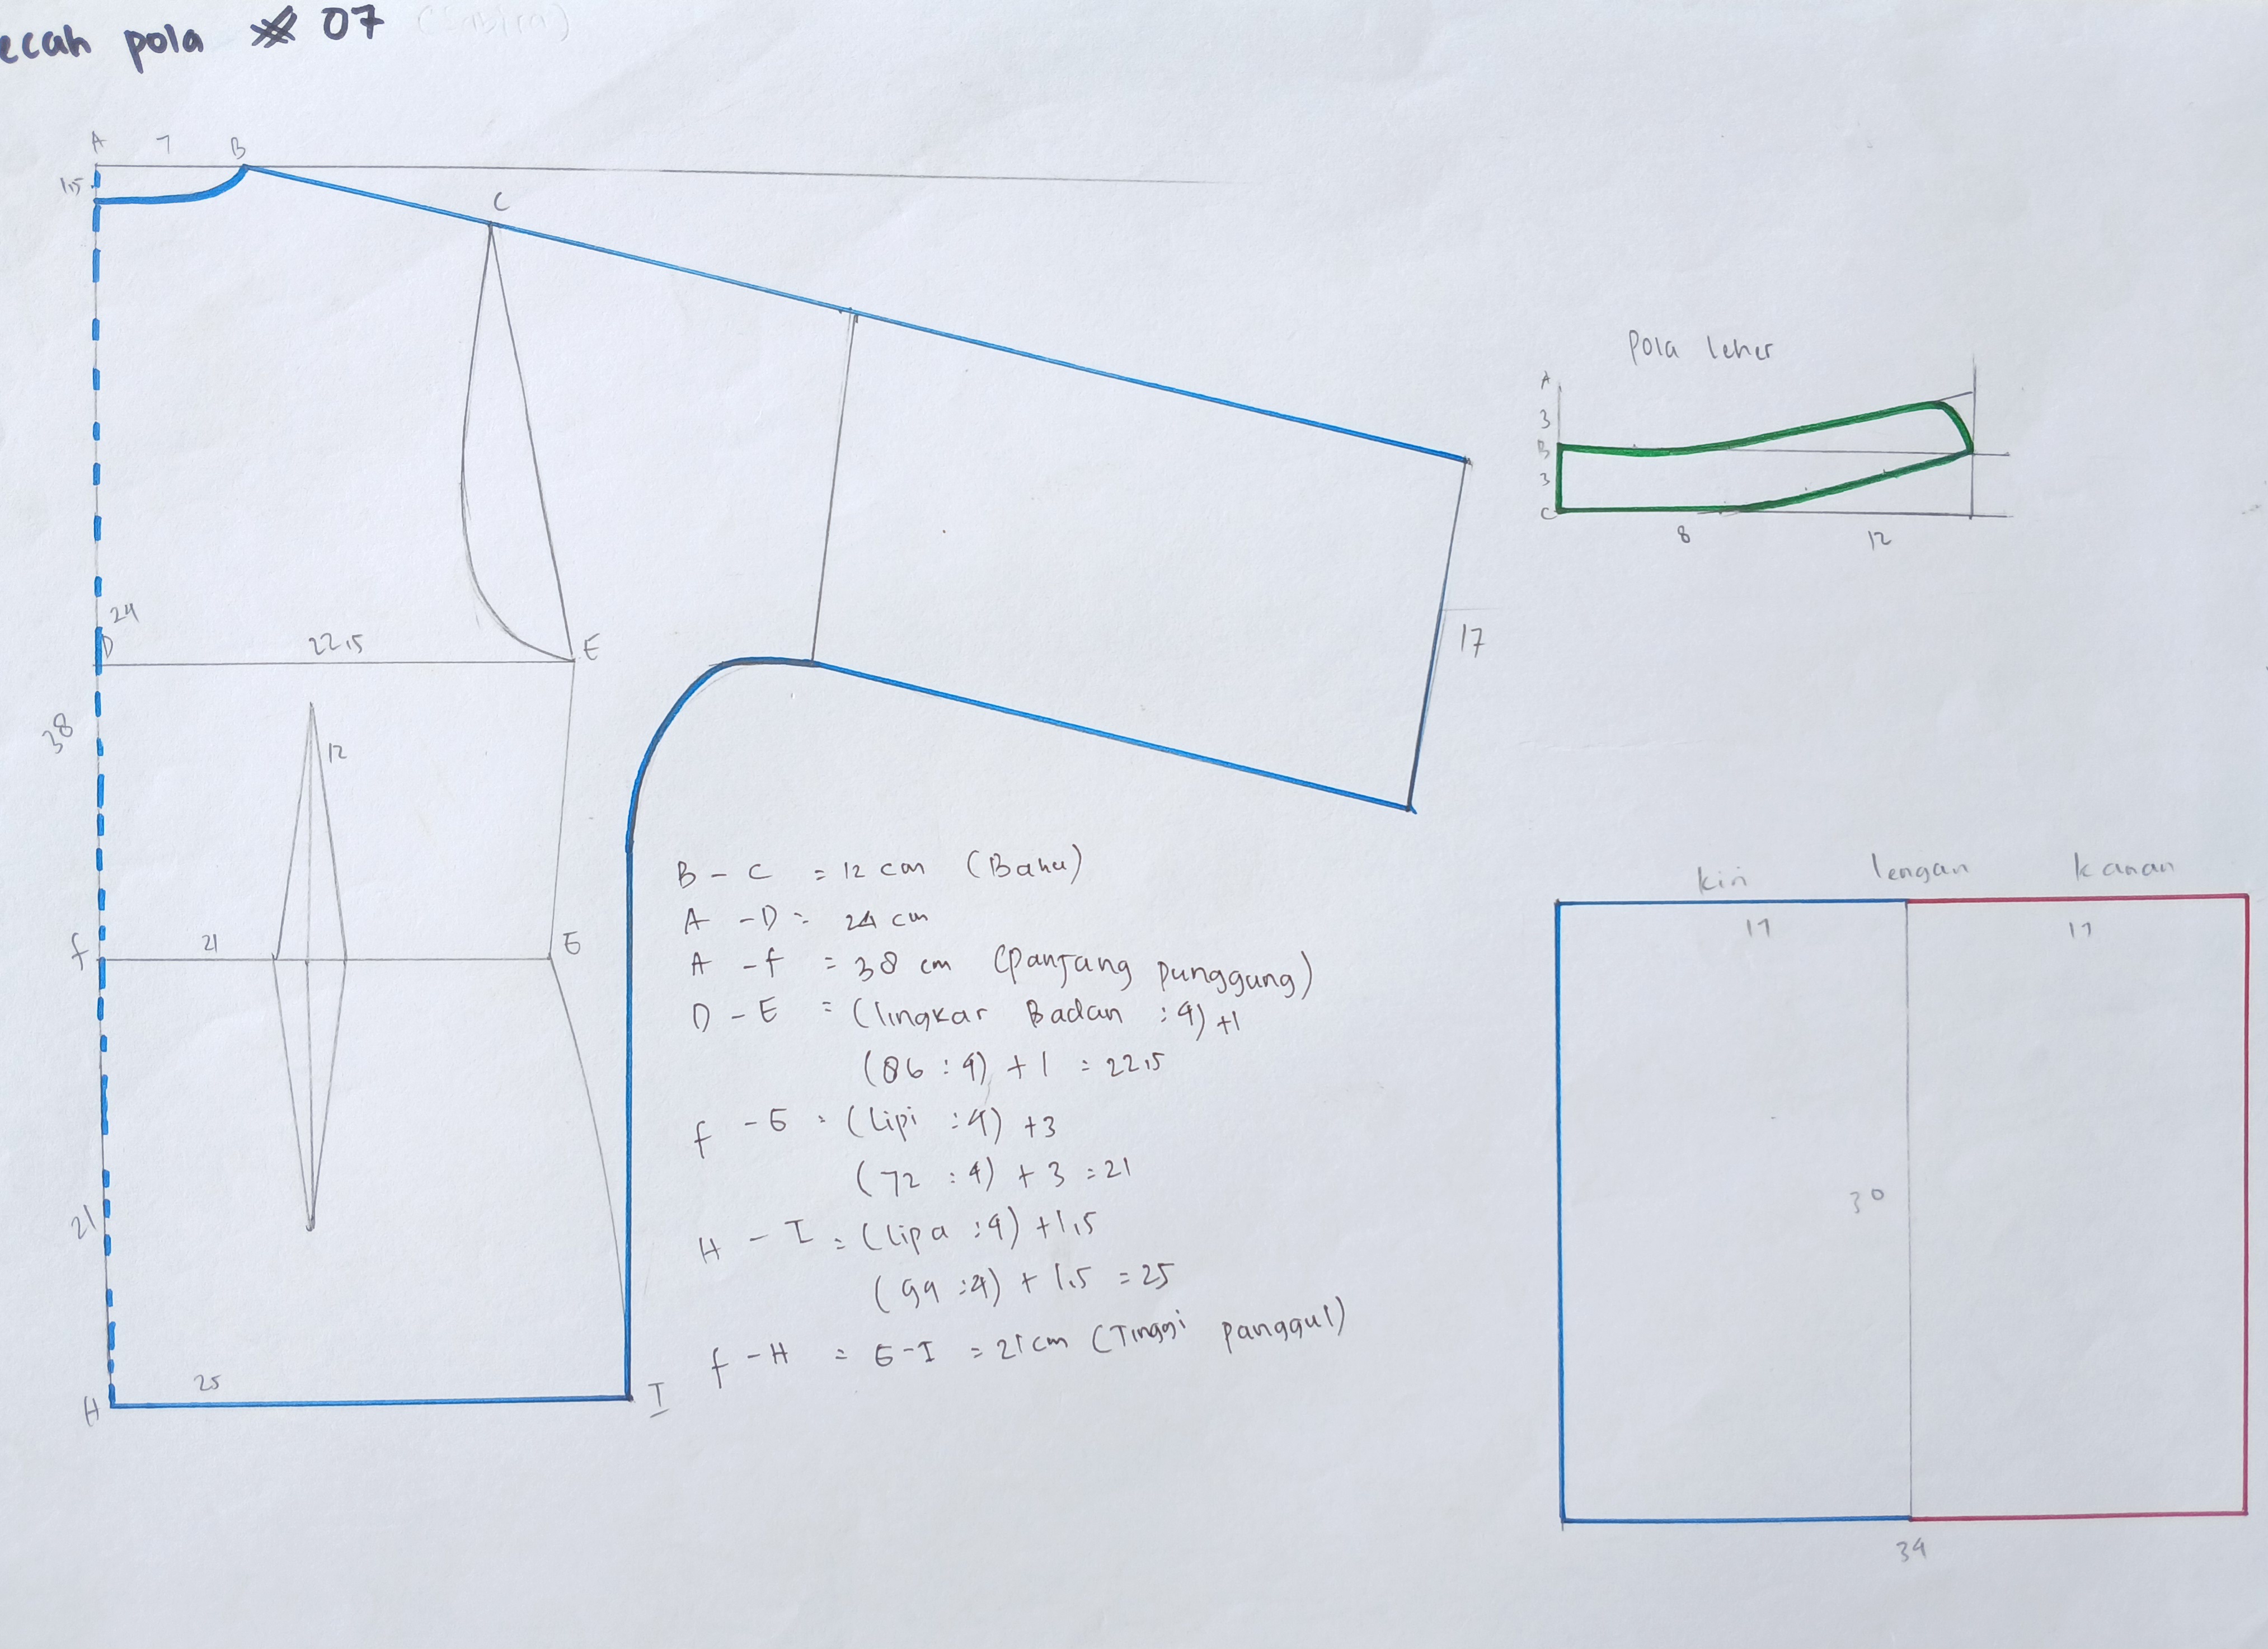 ecah pola # 07
A 7 B
1,5
C
24
D 22,5 E
38
12
f 21 G
21
25
H I
17
B - C = 12 cm (Bahu)
A - D = 24 cm
A - f = 38 cm (Panjang punggung)
D - E = (lingkar Badan : 4) +1
(86 : 4) + 1 = 22,5
f - G = (Lipi : 4) +3
(72 : 4) + 3 = 21
H - I = (lipa : 4) +1,5
(94 : 4) + 1,5 = 25
f - H = G - I = 21 cm (Tinggi panggul)
Pola leher
A
3
B
3
C
8 12
kiri lengan kanan
17 17
30
34